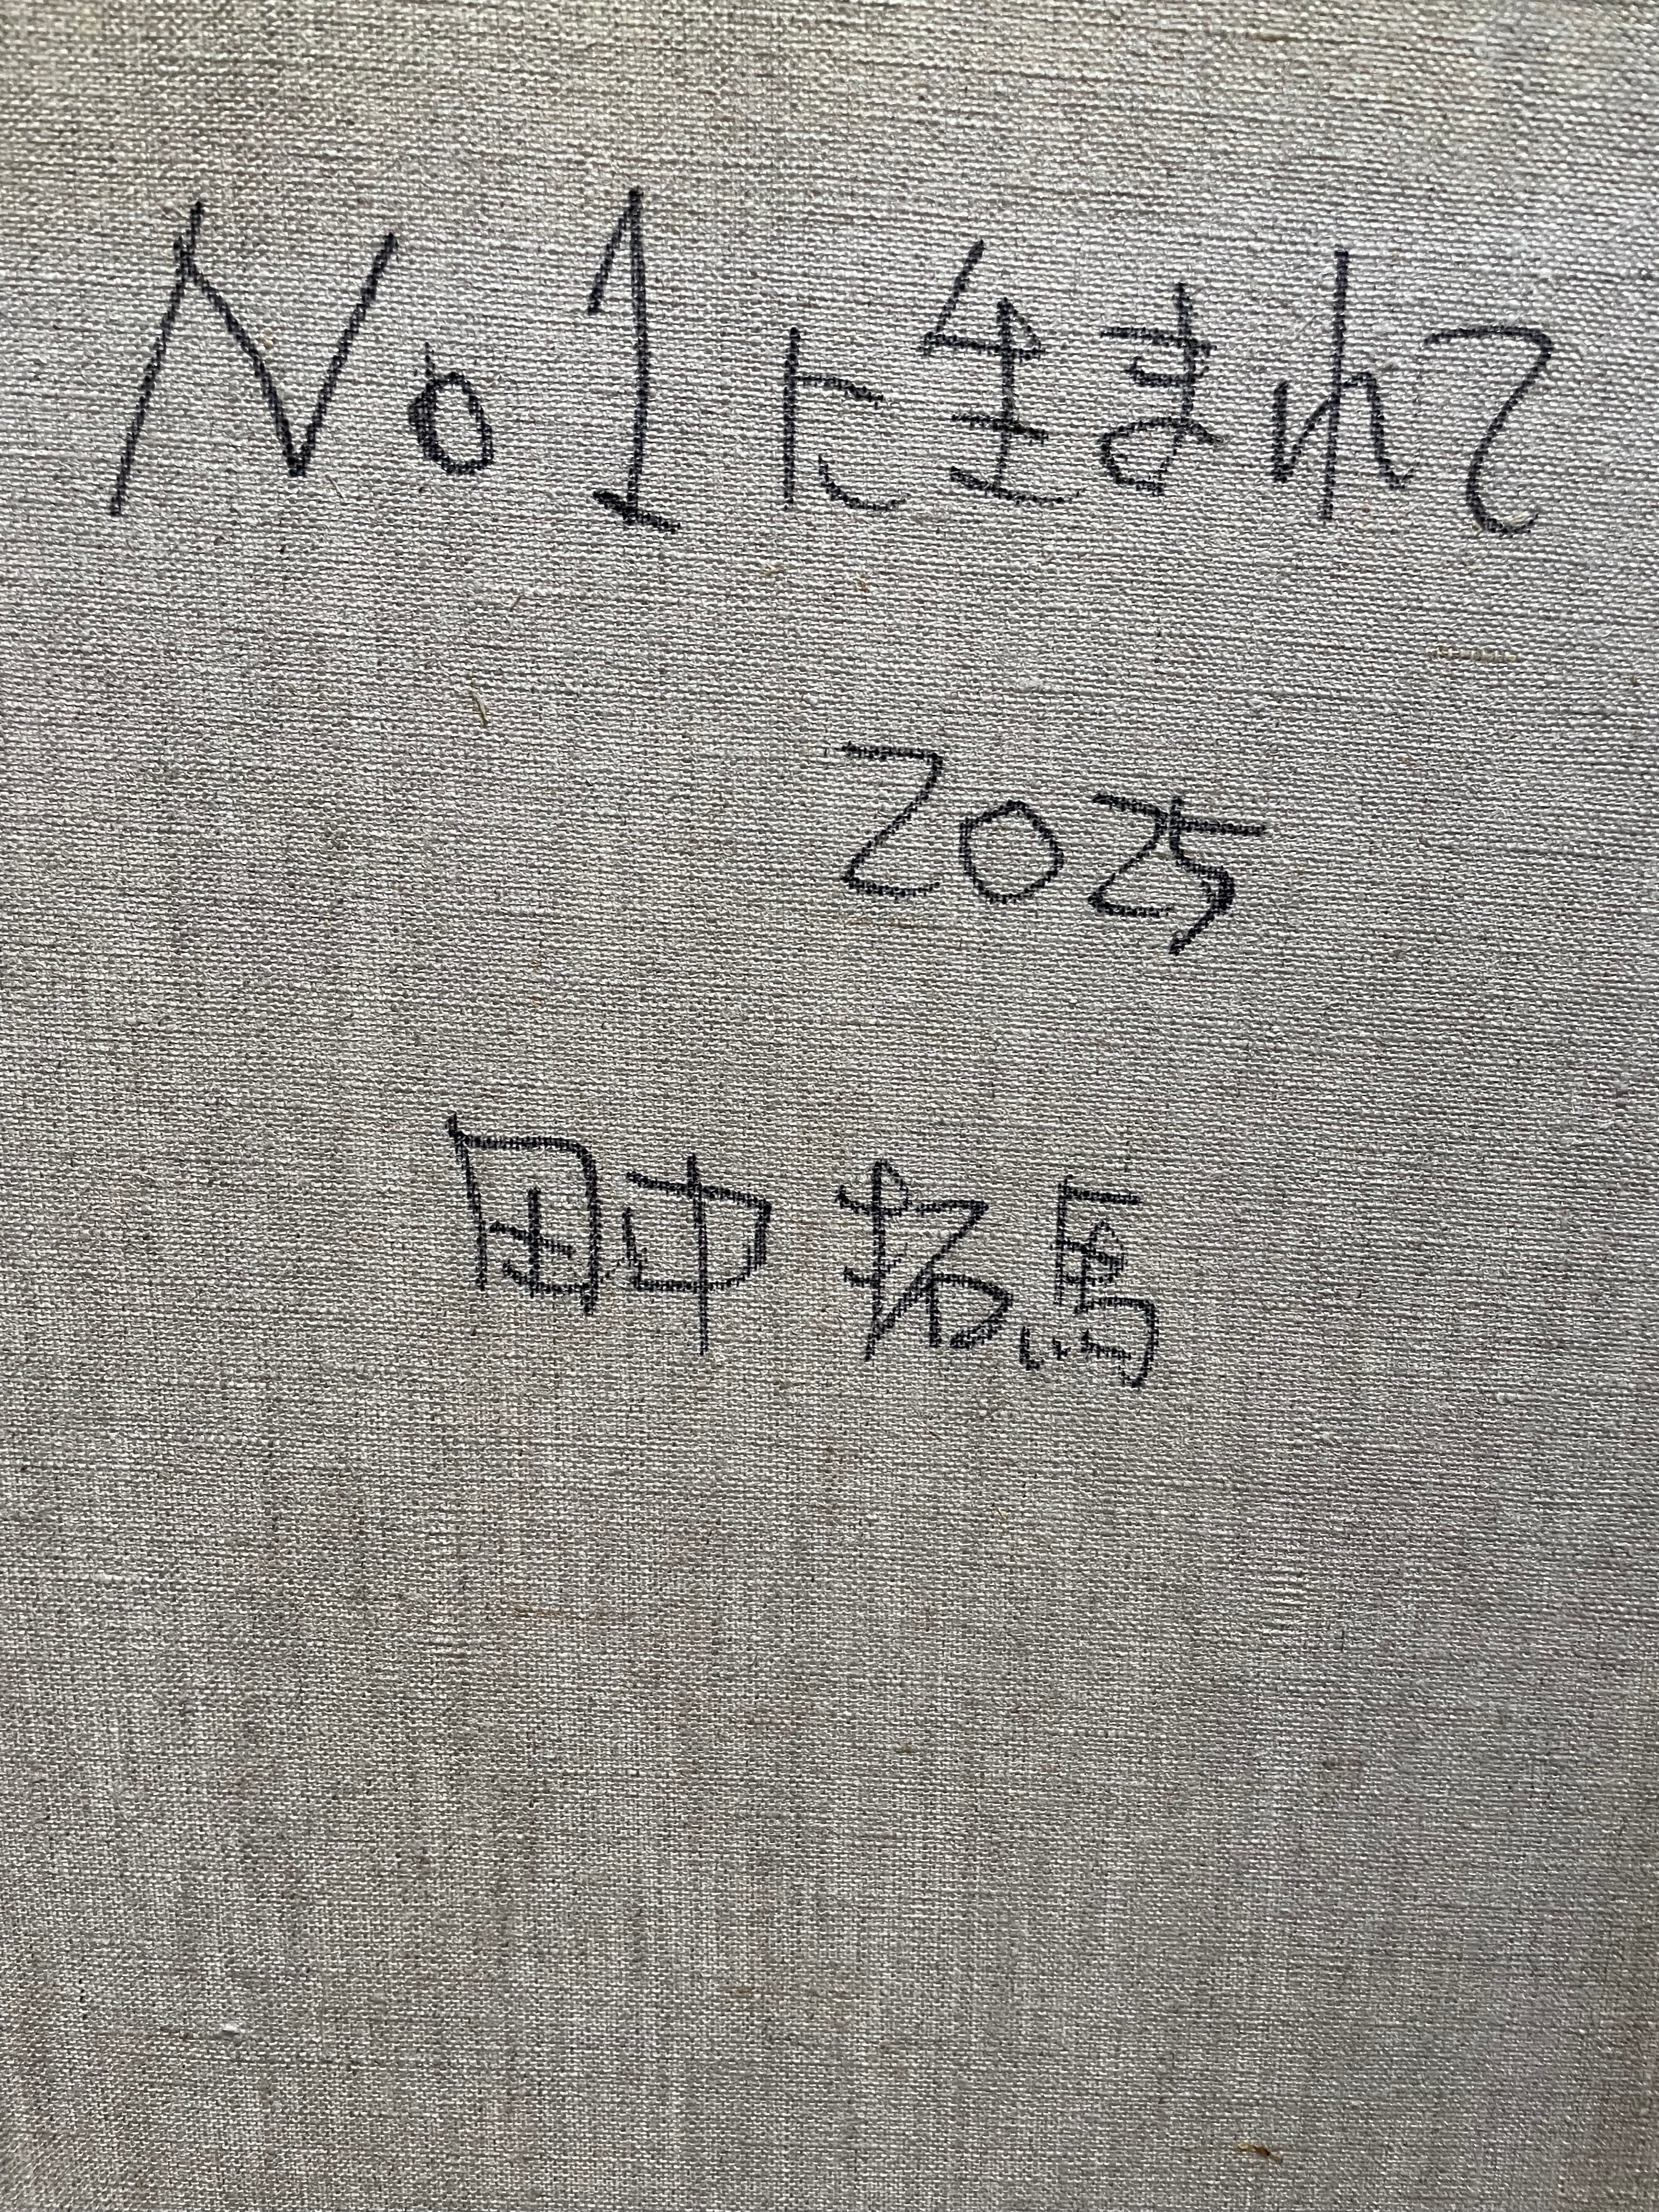 No1に生まれて
2025
田中拓馬